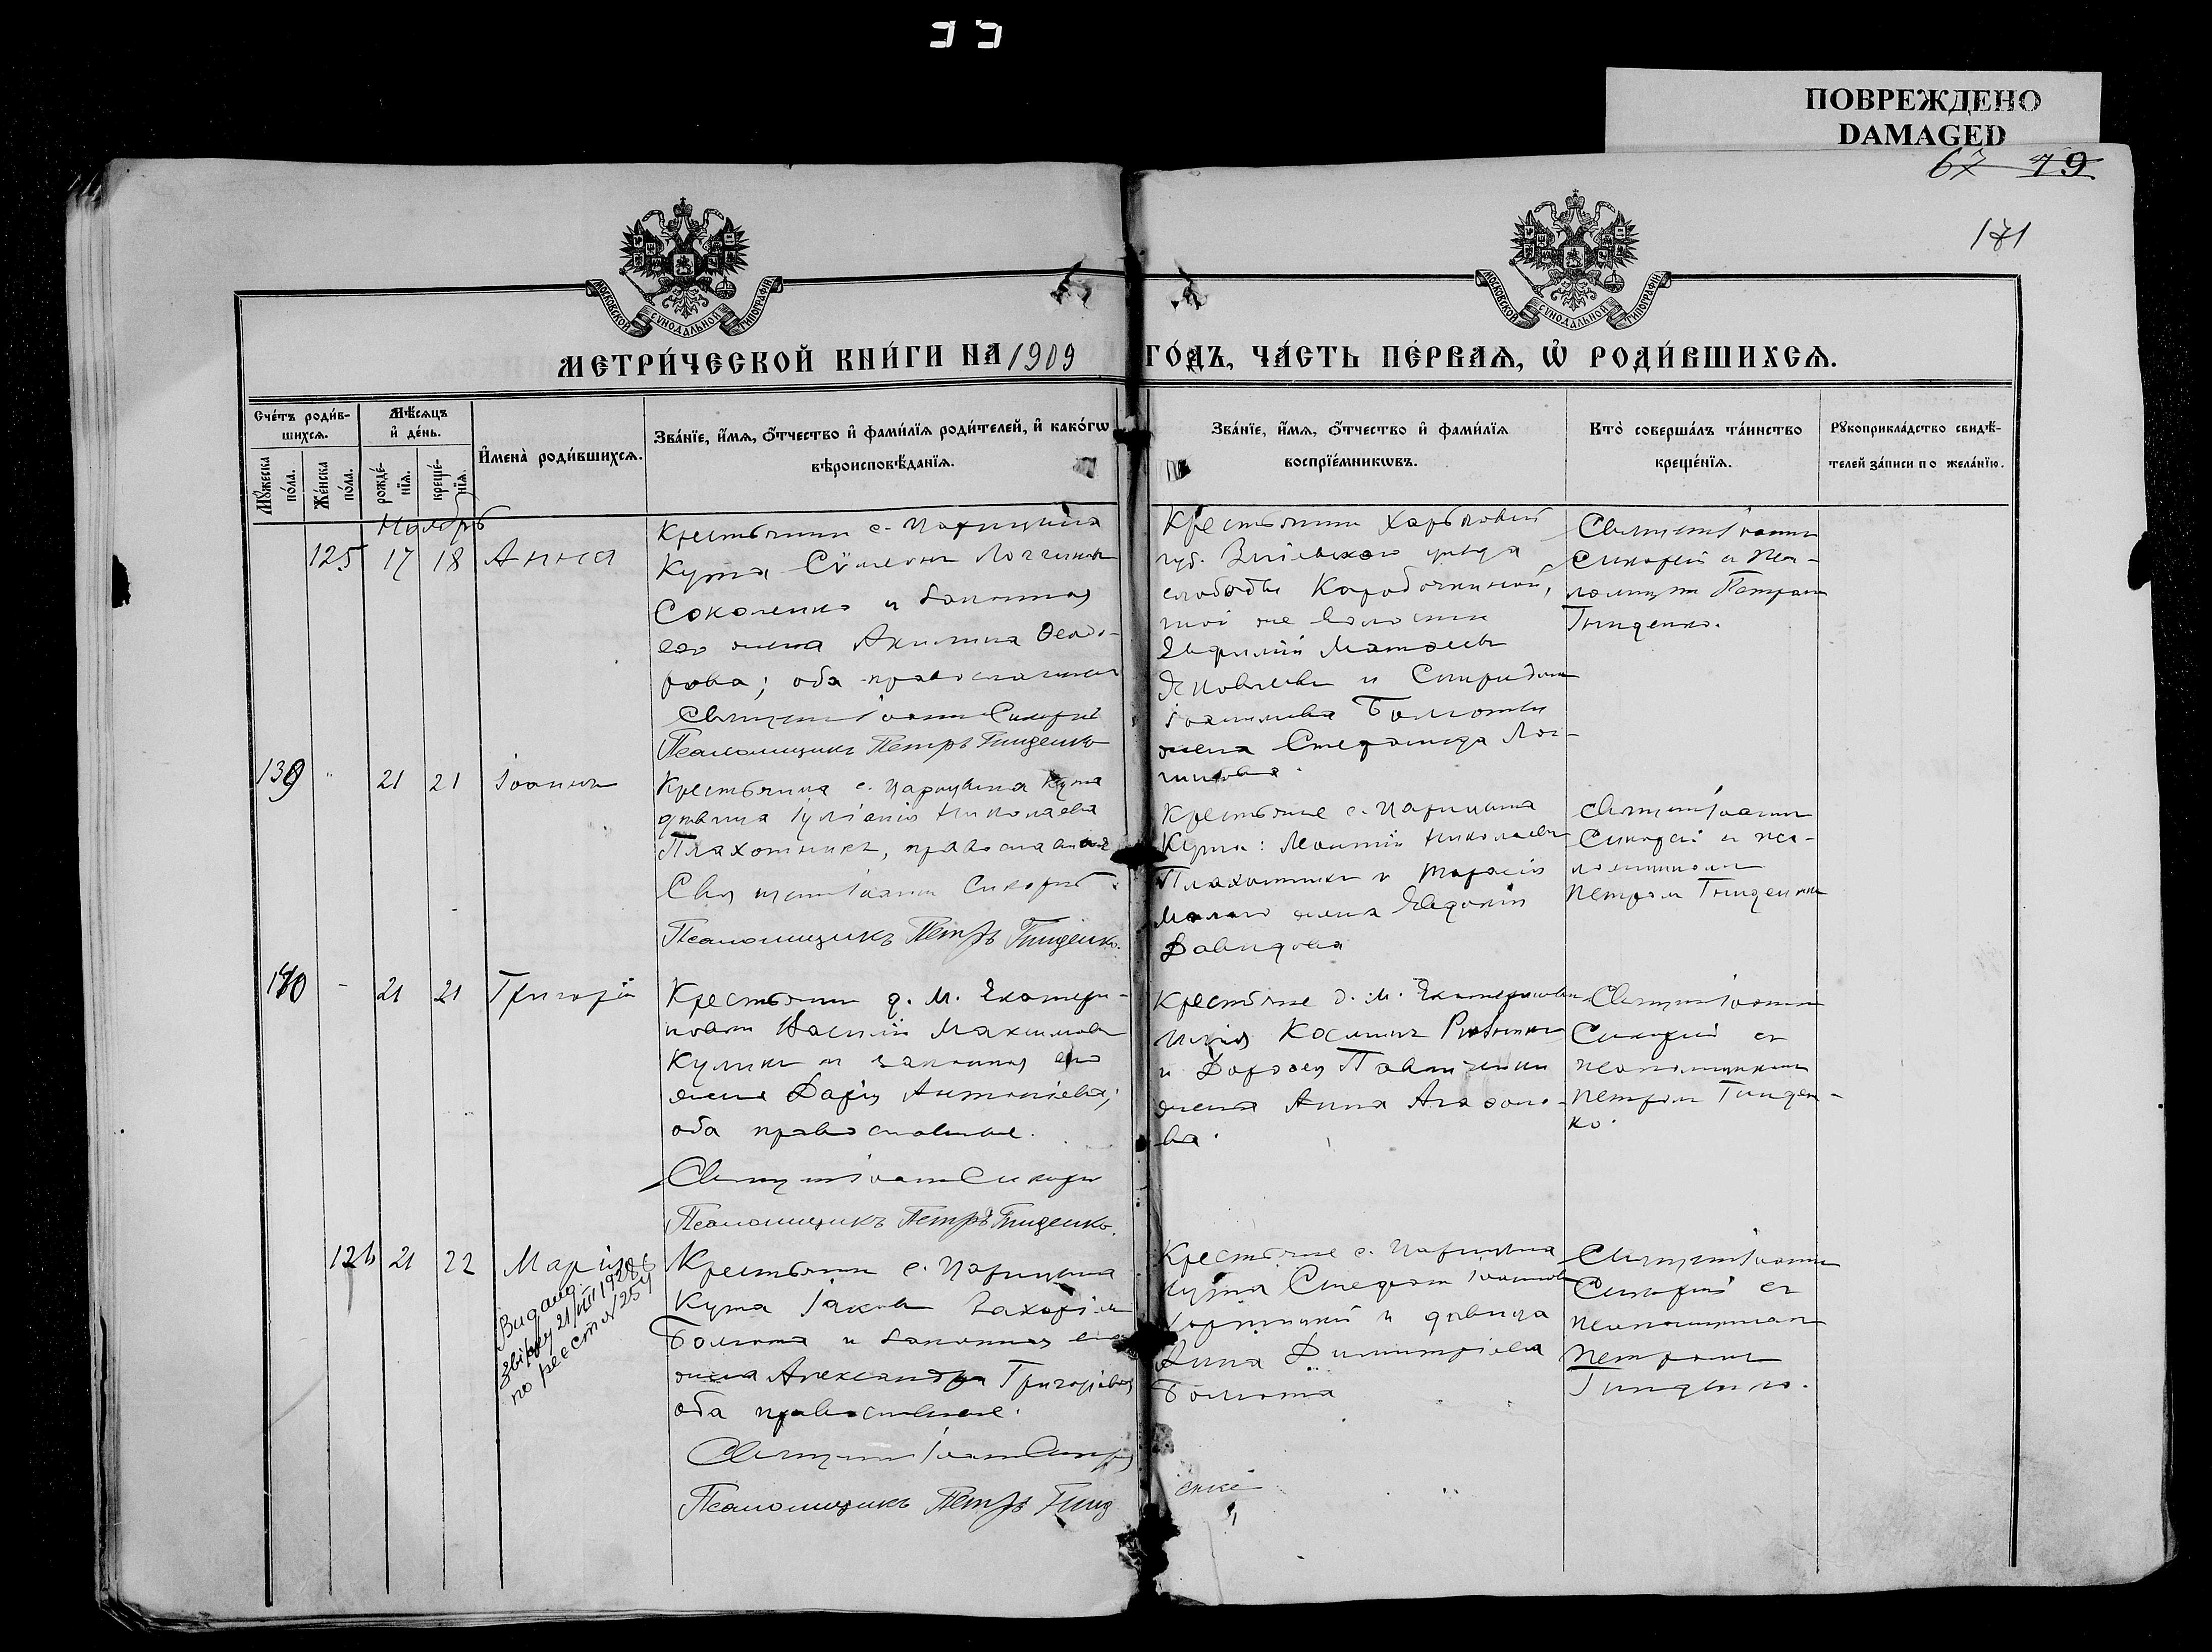 ПОВРЕЖДЕНО
DAMAGED
67 19
171
МОСКОВСКОЙ СУНОДАЛЬНОЙ ТИПОГРАФІИ
МОСКОВСКОЙ СУНОДАЛЬНОЙ ТИПОГРАФІИ
МЕТРИ́ЧЕСКОЙ КНИ́ГИ НА 1909 ГО́ДЪ, ЧА́СТЬ ПЕ́РВАѦ, Ѡ҆ РОДИ́ВШИХСѦ.
Сче́тъ роди́в-
шихсѧ.
Мꙋ́жеска по́ла.
Же́нска по́ла.
Мѣ́сѧцъ
и҆ де́нь.
рожде́-
нїѧ.
креще́-
нїѧ.
И҆мена̀ роди́вшихсѧ.
Зва́нїе, и҆́мѧ, ѻ҆́тчество и҆ фами́лїѧ роди́телей, и҆ како́гѡ
вѣроисповѣ́данїѧ.
Зва́нїе, и҆́мѧ, ѻ҆́тчество и҆ фами́лїѧ
воспрїе́мникѡвъ.
Кто̀ соверша́лъ та́инство
креще́нїѧ.
Рꙋкоприкла́дство свидѣ́-
телей за́писи по жела́нїю.
Ноябрь
125 17 18 Анна
Крестьянин с. Царицына
Кута Сѵмеон Логгинов
Соколенко и законная
его жена Акилина Ѳеодо-
рова; оба православные
Священ Іоанн Сикорскій
Псаломщикъ Петръ Гниденко
Крестьянин Харьковск
губ. Зміевского уезда
слободы Коробочкиной,
той же волости
Матвеев
Яковлев и Спиридон
Іоакимова Болоты
жена Стефанида Лог-
гинова.
Священ Іоанн
Сикорский и пса-
ломщик Петром
Гниденко.
139 " 21 21 Іоанн
Крестьянка с. Царицына Кута
девица Іуліанія Николаева
Плахотник, православная
Священ Іоанн Сикорскій
Псаломщикъ Петръ Гниденко.
Крестьяне с. Царицына
Кута: Николаев
Плахотник и Тарасія
жена Евдокія
Давидова
Священ Іоанн
Сикорский и пса-
ломщиком
Петром Гниденко
140 - 21 21 Григорій
Крестьянин д. М. Екатери-
новки Василій Максимов
Кулик и законная его
жена Дарія Антоніева;
оба православные.
Священ Іоанн Сикорскій
Псаломщикъ Петръ Гниденко.
Крестьяне д. М. Екатериновки
Илія Космин
и Дорофея Павличенки
жена Анна Агафоно-
ва.
Священ Іоанн
Сикорский с
псаломщиком
Петром Гниден-
ко.
126 21 22 Марія
Видана
21/VIII 1928
по реестр № 254
Крестьянин с. Царицына
Кута Іаков Захаріин
Болота и законная его
жена Александра Григорьева
оба православные.
Священ Іоанн Сикорскій
Псаломщикъ Петръ Гнид
енко
Крестьяне с. Царицына
Кута Стефан Іоаннов
и девица
Анна Димитріева
Болота
Священ Іоанн
Сикорский с
псаломщиком
Петром
Гниденко.